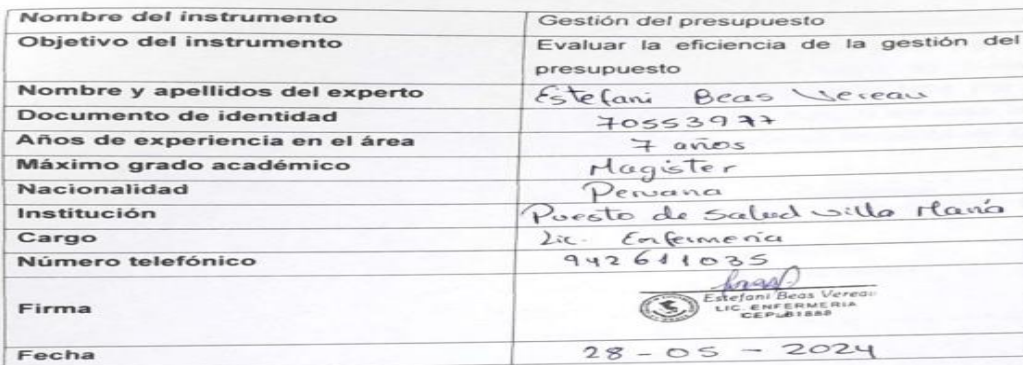 Nombre del instrumento Gestión del presupuesto
Objetivo del instrumento Evaluar la eficiencia de la gestión del
presupuesto
Nombre y apellidos del experto Estefani Beas Vereau
Documento de identidad 70553977
Años de experiencia en el área 7 años
Máximo grado académico Magister
Nacionalidad Peruana
Institución Puesto de Salud Villa María
Cargo Lic. Enfermería
Número telefónico 942611035
Firma
Estefani Beas Vereau
LIC. ENFERMERIA
Fecha 28 - 05 - 2024